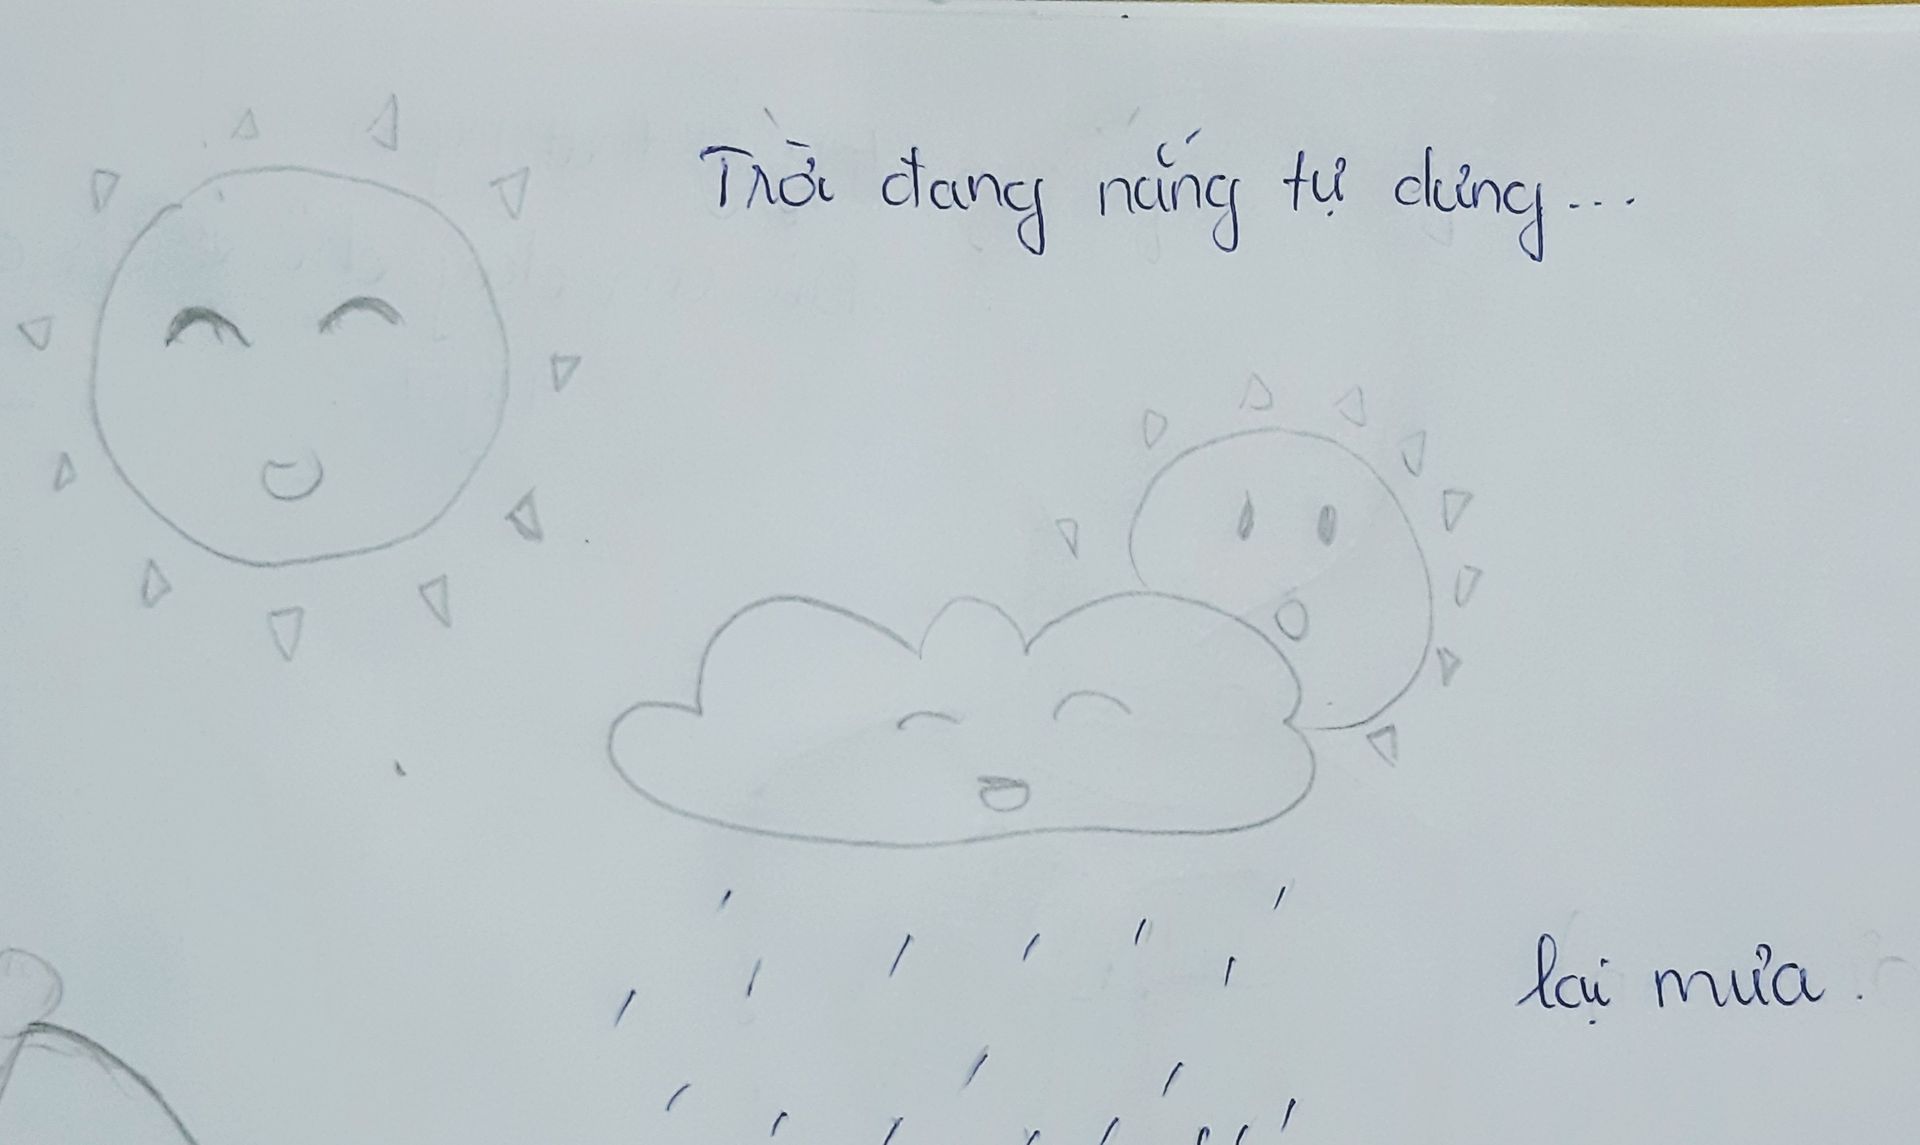 Trời đang nắng tự dưng...
lại mưa.